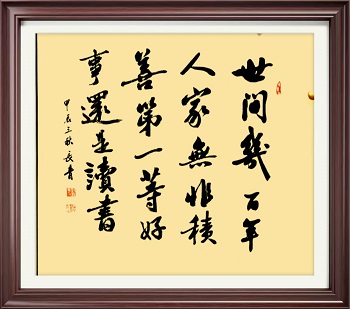 世间几百年
人家無非積
善第一等好
事還是讀書
甲辰三秋长青